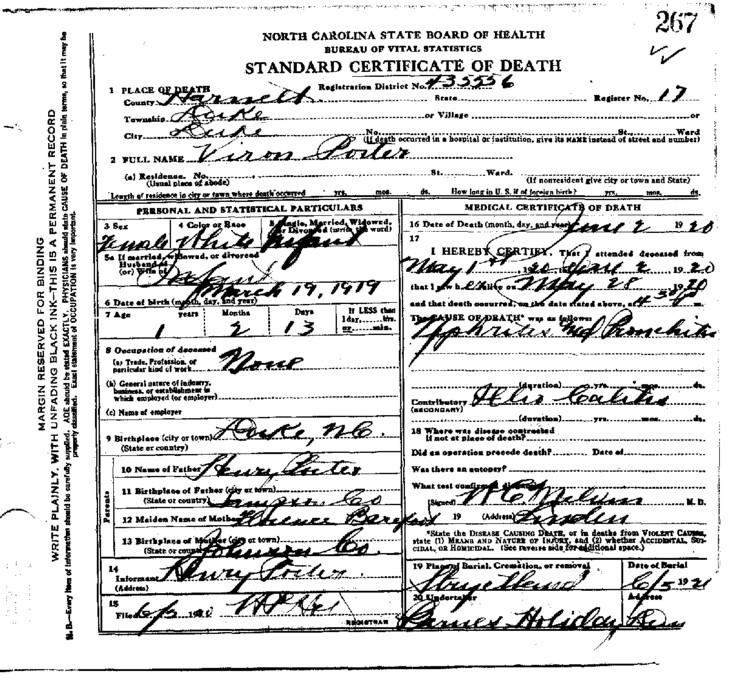 267
NORTH CAROLINA STATE BOARD OF HEALTH
BUREAU OF VITAL STATISTICS
STANDARD CERTIFICATE OF DEATH
1 PLACE OF DEATH Registration District No. 435556
County Harnett State Register No. 17
Township Duke or Village or
City Duke No. St. Ward
(If death occurred in a hospital or institution, give its NAME instead of street and number)
2 FULL NAME Viron Porter
(a) Residence. No. St. Ward.
(Usual place of abode) (If nonresident give city or town and State)
Length of residence in city or town where death occurred yrs. mos. ds. How long in U. S. if of foreign birth? yrs. mos. ds.
PERSONAL AND STATISTICAL PARTICULARS
3 Sex 4 Color or Race 5 Single, Married, Widowed, or Divorced (write the word)
Female White Infant
5a If married, widowed, or divorced
Husband of
(or) Wife of Infant
March 19, 1919
6 Date of birth (month, day, and year)
7 Age years Months Days If LESS than
1 day, hrs.
or min.
1 2 13
8 Occupation of deceased
(a) Trade, Profession, or
particular kind of work None
(b) General nature of industry,
business, or establishment in
which employed (or employer)
(c) Name of employer
9 Birthplace (city or town) Duke, NC.
(State or country)
Parents
10 Name of Father Henry Porter
11 Birthplace of Father (city or town)
(State or country) Sampson Co
12 Maiden Name of Mother Florence Barefoot
13 Birthplace of Mother (city or town)
(State or country) Johnson Co.
14
Informant Henry Porter
(Address)
15
Filed 6/5 1920
REGISTRAR
MEDICAL CERTIFICATE OF DEATH
16 Date of Death (month, day, and year) June 2 1920
17
I HEREBY CERTIFY, That I attended deceased from
May 1st 1920 June 2 1920
that I saw h alive on May 28 1920
and that death occurred, on the date stated above, at 430 m.
The CAUSE OF DEATH* was as follows:
Nephritis and Bronchitis
(duration) yrs. mos. ds.
Contributory Ileo Colitis
(SECONDARY)
(duration) yrs. mos. ds.
18 Where was disease contracted
if not at place of death?
Did an operation precede death? Date of
Was there an autopsy?
What test confirmed diagnosis?
(Signed) M. D.
19 (Address) Linden
*State the DISEASE CAUSING DEATH, or in deaths from VIOLENT CAUSES,
state (1) MEANS AND NATURE OF INJURY, and (2) whether ACCIDENTAL, SUI-
CIDAL, OR HOMICIDAL. (See reverse side for additional space.)
19 Place of Burial, Cremation, or removal Date of Burial
6/5 1920
20 Undertaker Address
Barnes Holiday Dunn
MARGIN RESERVED FOR BINDING
WRITE PLAINLY, WITH UNFADING BLACK INK—THIS IS A PERMANENT RECORD
N. B.—Every item of information should be carefully supplied. AGE should be stated EXACTLY. PHYSICIANS should state CAUSE OF DEATH in plain terms, so that it may be
properly classified. Exact statement of OCCUPATION is very important.